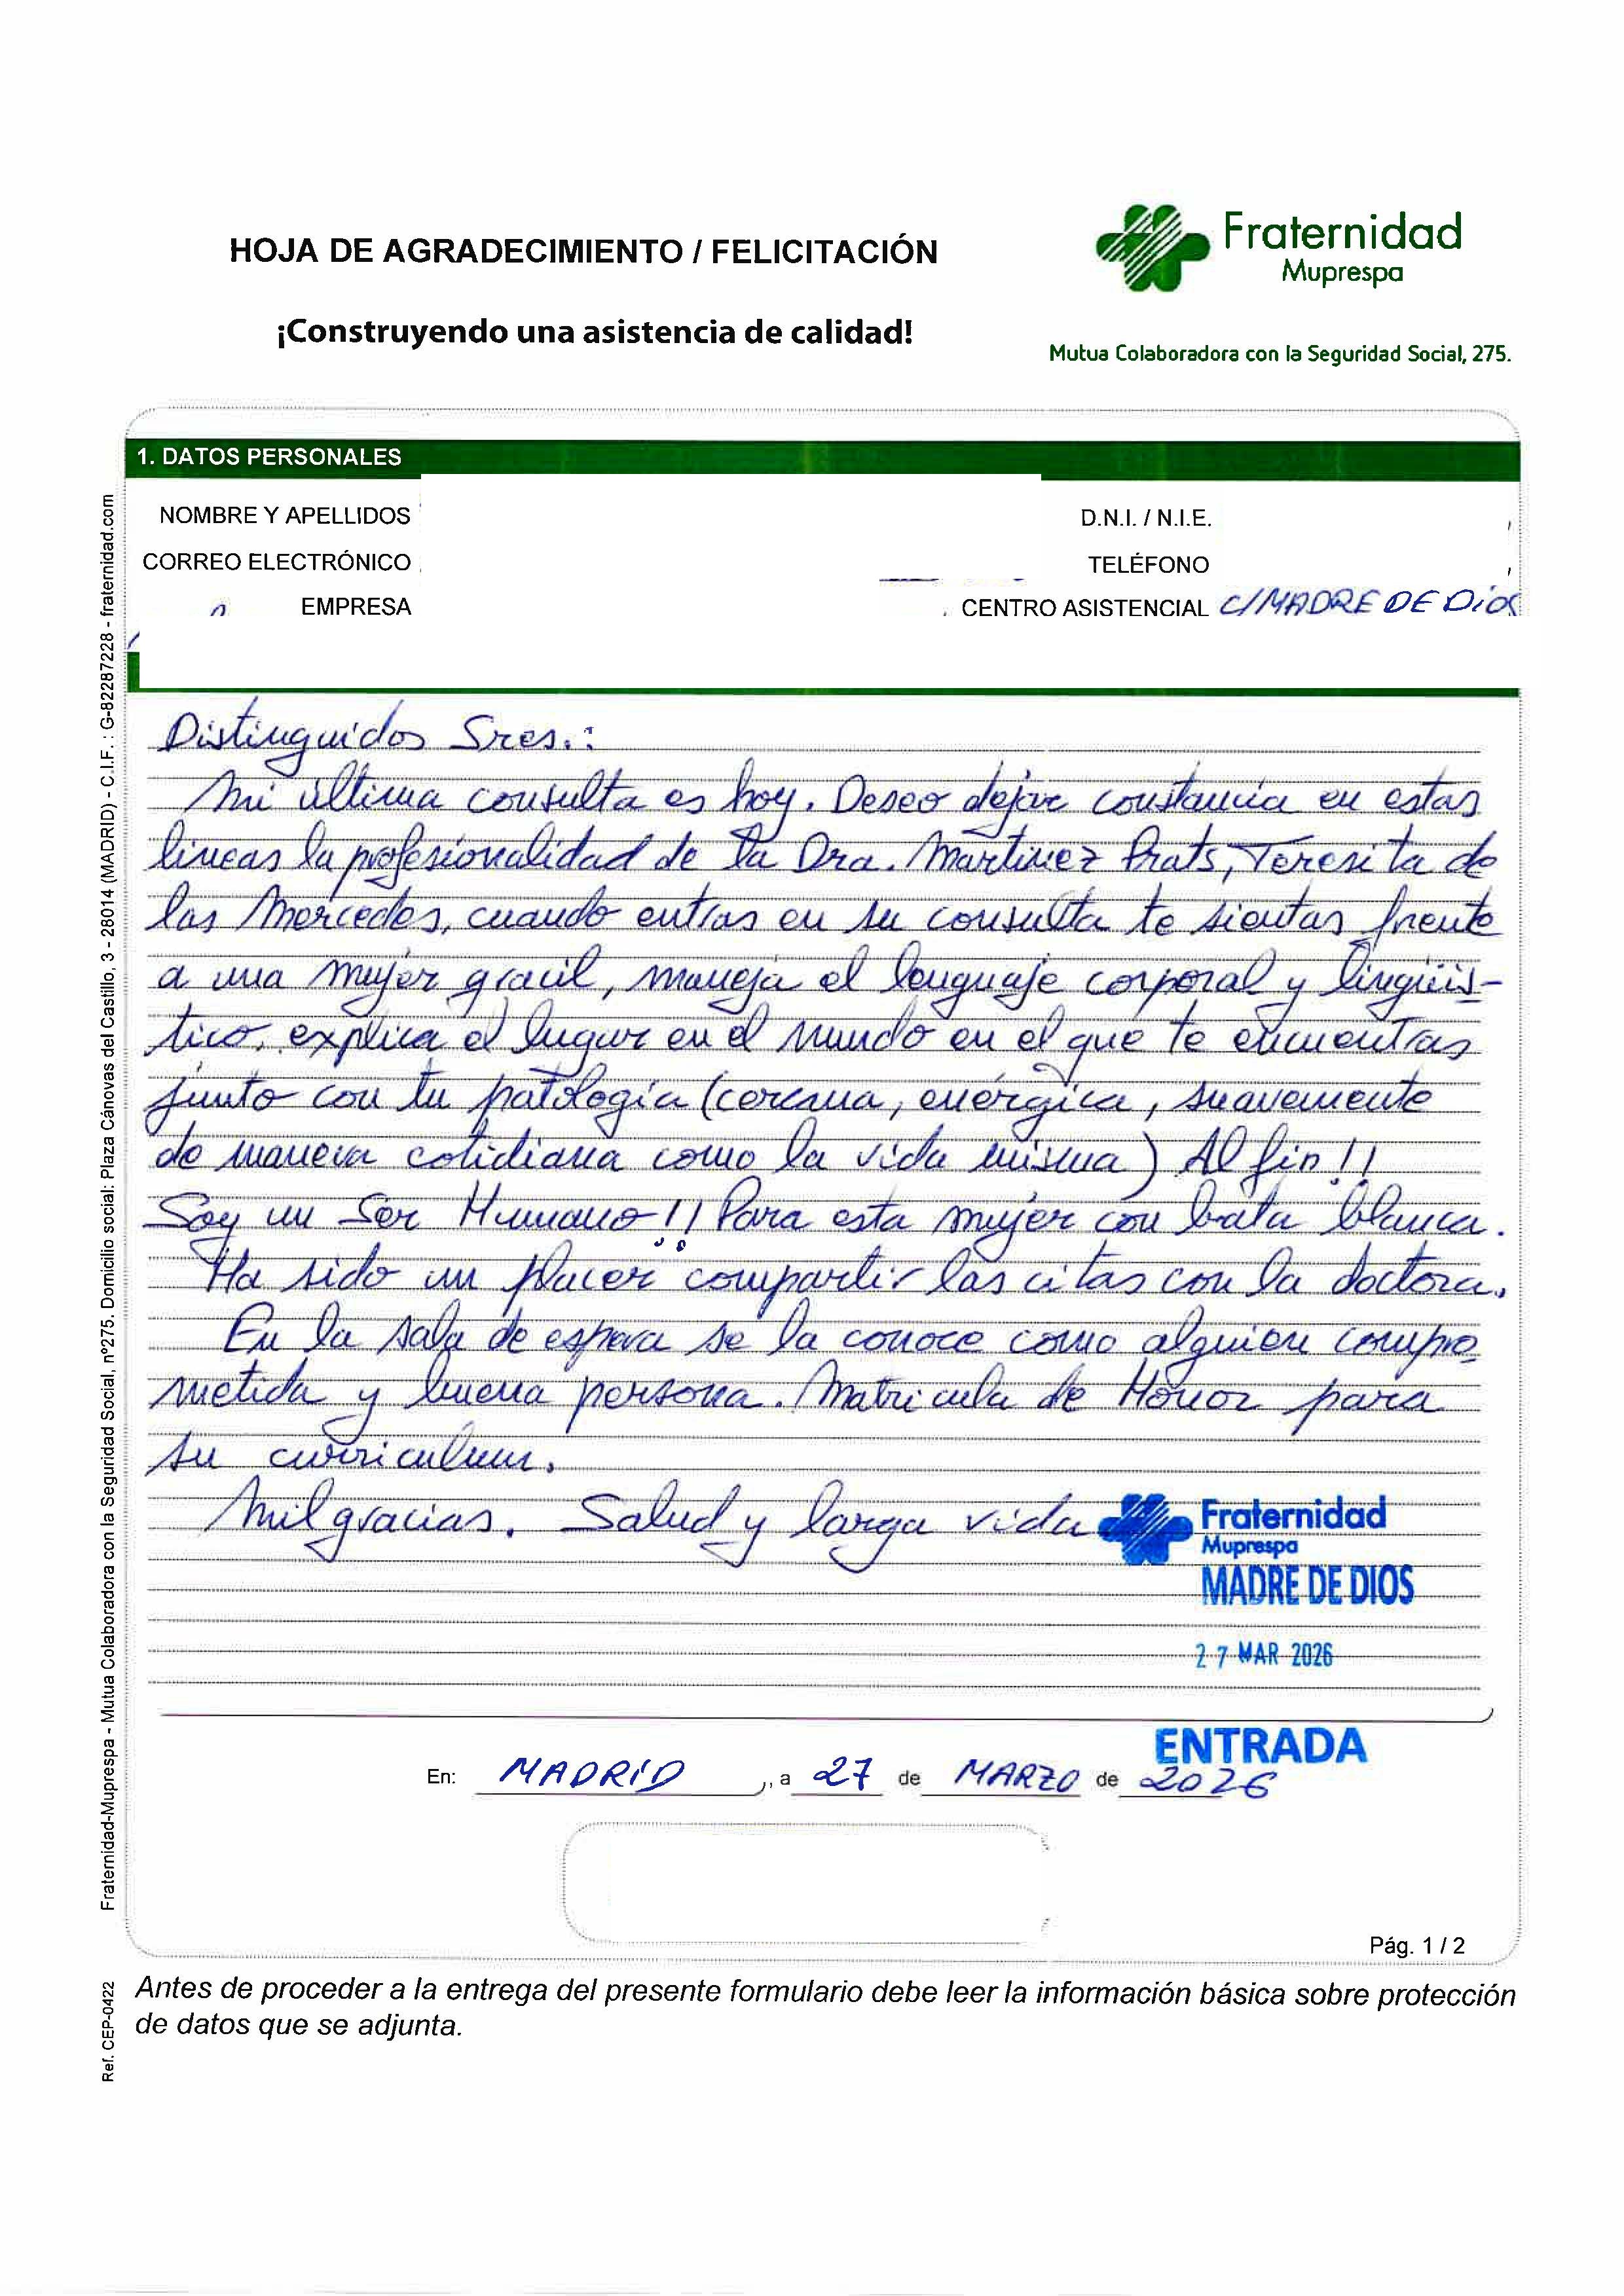 HOJA DE AGRADECIMIENTO / FELICITACIÓN
¡Construyendo una asistencia de calidad!
Fraternidad
Muprespa
Mutua Colaboradora con la Seguridad Social, 275.
1. DATOS PERSONALES
NOMBRE Y APELLIDOS
D.N.I. / N.I.E.
CORREO ELECTRÓNICO
TELÉFONO
EMPRESA
CENTRO ASISTENCIAL C/MADRE DE DiOS
Distinguidos Sres.:
Mi última consulta es hoy. Deseo dejar constancia en estas
líneas la profesionalidad de la Dra. Martinez Prats, Teresita de
las Mercedes, cuando entras en su consulta te sientas frente
a una mujer gracil, maneja el lenguaje corporal y lingüís-
tico, explica el lugar en el mundo en el que te encuentras
junto con tu patología (cercana, enérgica, suavemente
de manera cotidiana como la vida misma) Al fin!!
Soy un Ser Humano!! Para esta mujer con bata blanca.
Ha sido un placer compartir las citas con la doctora.
En la sala de espera se la conoce como alguien compro
metida y buena persona. Matricula de Honor para
su curriculum.
Mil gracias. Salud y larga vida
Fraternidad
Muprespa
MADRE DE DIOS
27 MAR 2026
ENTRADA
En: MADRID, a 27 de MARZO de 2026
Pág. 1 / 2
Antes de proceder a la entrega del presente formulario debe leer la información básica sobre protección
de datos que se adjunta.
Fraternidad-Muprespa - Mutua Colaboradora con la Seguridad Social, nº275. Domicilio social: Plaza Cánovas del Castillo, 3 - 28014 (MADRID) - C.I.F. : G-82287228 - fraternidad.com
Ref. CEP-0422